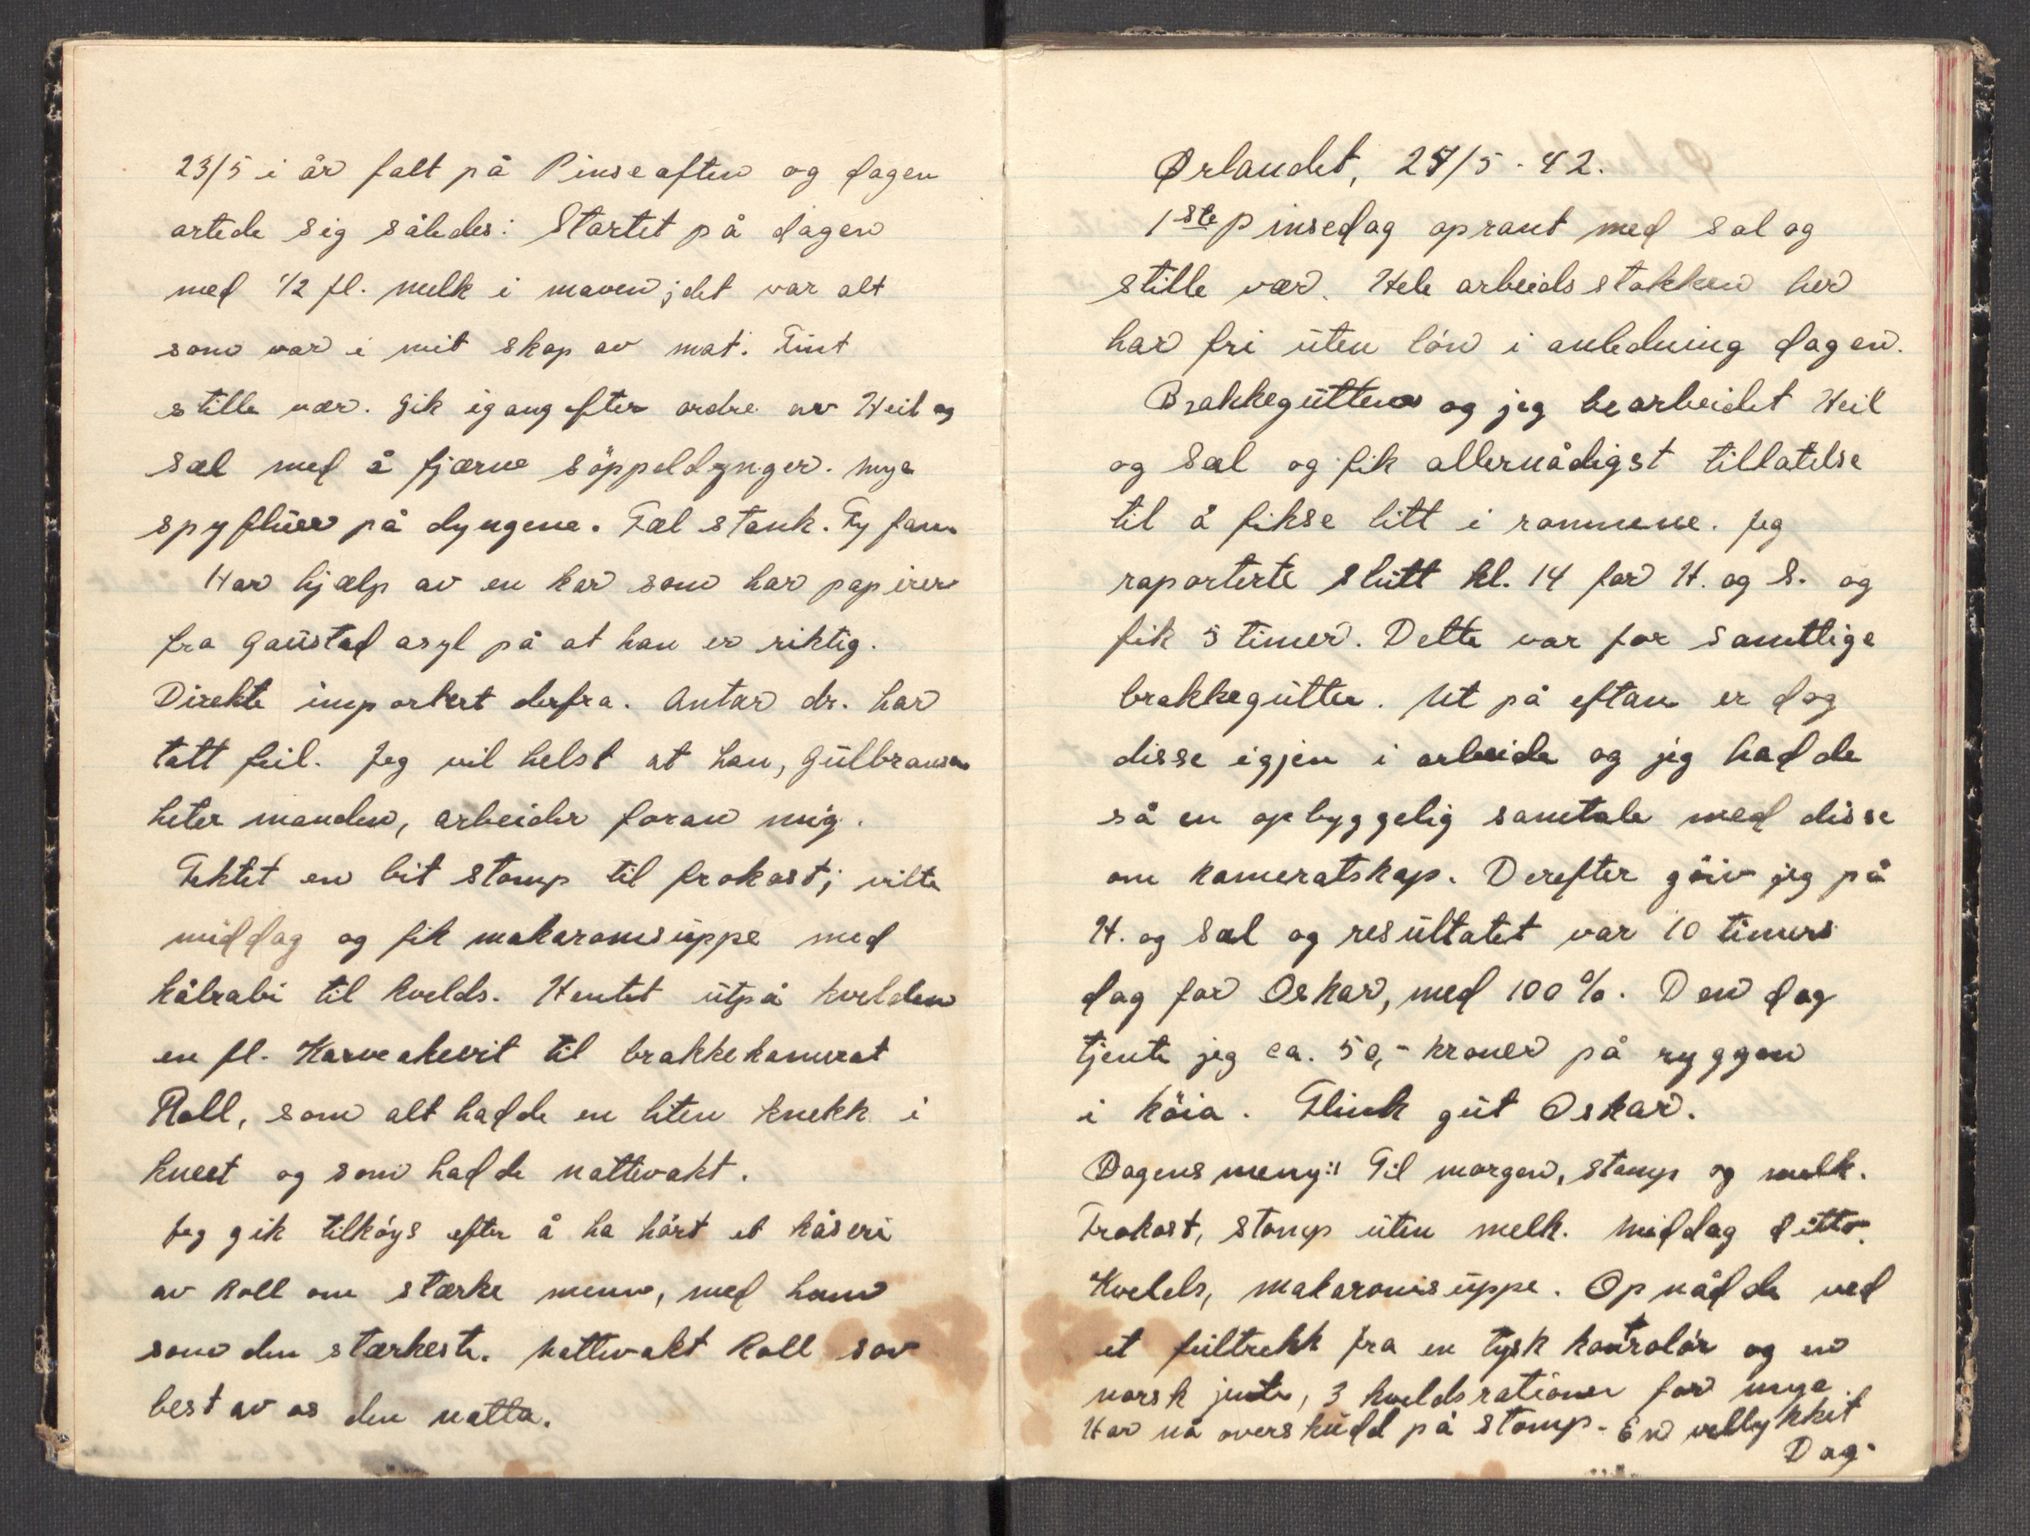 23/5 i år falt på Pinseaften og dagen
artede sig således: Startet på dagen
med 1/2 fl. melk i maven; det var alt
som var i mit skap av mat. Fint
stille vær. Gik igang efter ordre av Heil og
Sæl med å fjærne söppeldynger. Mye
spyfluer på dyngene. Fæl stank. Fy fan.
Har hjælp av en kar som har papirer
fra Gaustad asyl på at han er riktig.
Direkte importert derfra. Antar dr. har
tatt feil. Jeg vil helst at han, Gulbransen
heter manden, arbeider foran mig.
Tektet en bit stomp til frokost; vilte
middag og fik makaronisuppe med
kålrabi til kvelds. Hentet utpå kvelden
en fl. Karveakevit til brakkekamerat
Roll, som alt hadde en liten knekk i
kneet og som hadde nattevakt.
Jeg gik tilköys efter å ha hört et kåseri
av Roll om stærke menn, med ham
som den stærkeste. Nattevakt Roll sov
best av os den natta.
Ørlandet, 24/5 - 42.
1ste pinsedag oprant med sol og
stille vær. Hele arbeidsstokken her
har fri uten lön i anledning dagen.
Brakkegutten og jeg bearbeidet Heil
og Sæl og fik allernådigst tillatelse
til å fikse litt i rommene. Jeg
raporterte slutt kl. 14 for H. og S. og
fik 5 timer. Dette var for samtlige
brakkegutter. Ut på eftan er dog
disse igjen i arbeide og jeg hadde
så en opbyggelig samtale med disse
om kameratskap. Derefter göiv jeg på
H. og Sæl og resultatet var 10 timers
dag for Oskar, med 100%. Den dag
tjente jeg ca. 50,- kroner på ryggen
i köia. Flink gut Oskar.
Dagens meny: Til morgen, stomp og melk.
Frokost, stomp uten melk. Middag ditto.
Kvelds, makaronisuppe. Opnådde ved
et feiltrekk fra en tysk kontrolör og en
norsk jente, 3 kveldsrationer for mye.
Har nå overskudd på stomp. En vellykket
Dag.